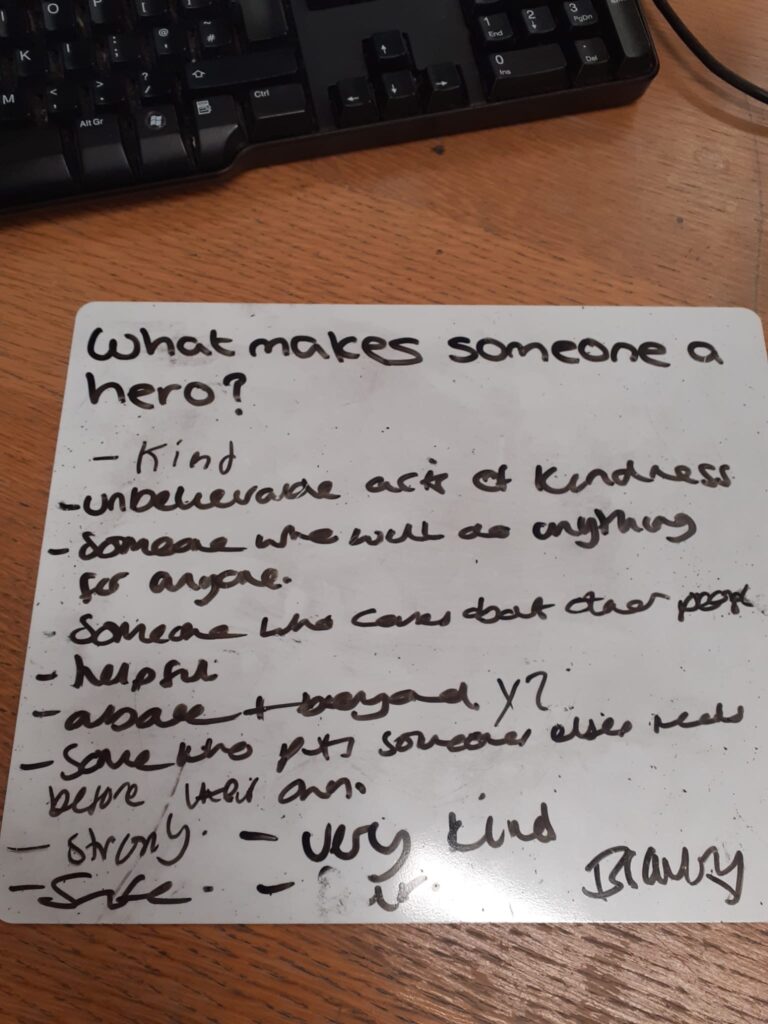 O
P
K
M
Alt Gr
Ctrl
1 End
2
3 PgDn
0 Ins
. Del
What makes someone a
hero?
- Kind
- unbelievable acts of kindness
- Someone who will do anything
for anyone.
- Someone who cares about other people
- helpful
- above + beyond. Y7
- Some who puts someones elses needs
before their own.
- Strong. - very kind
- Safe. -